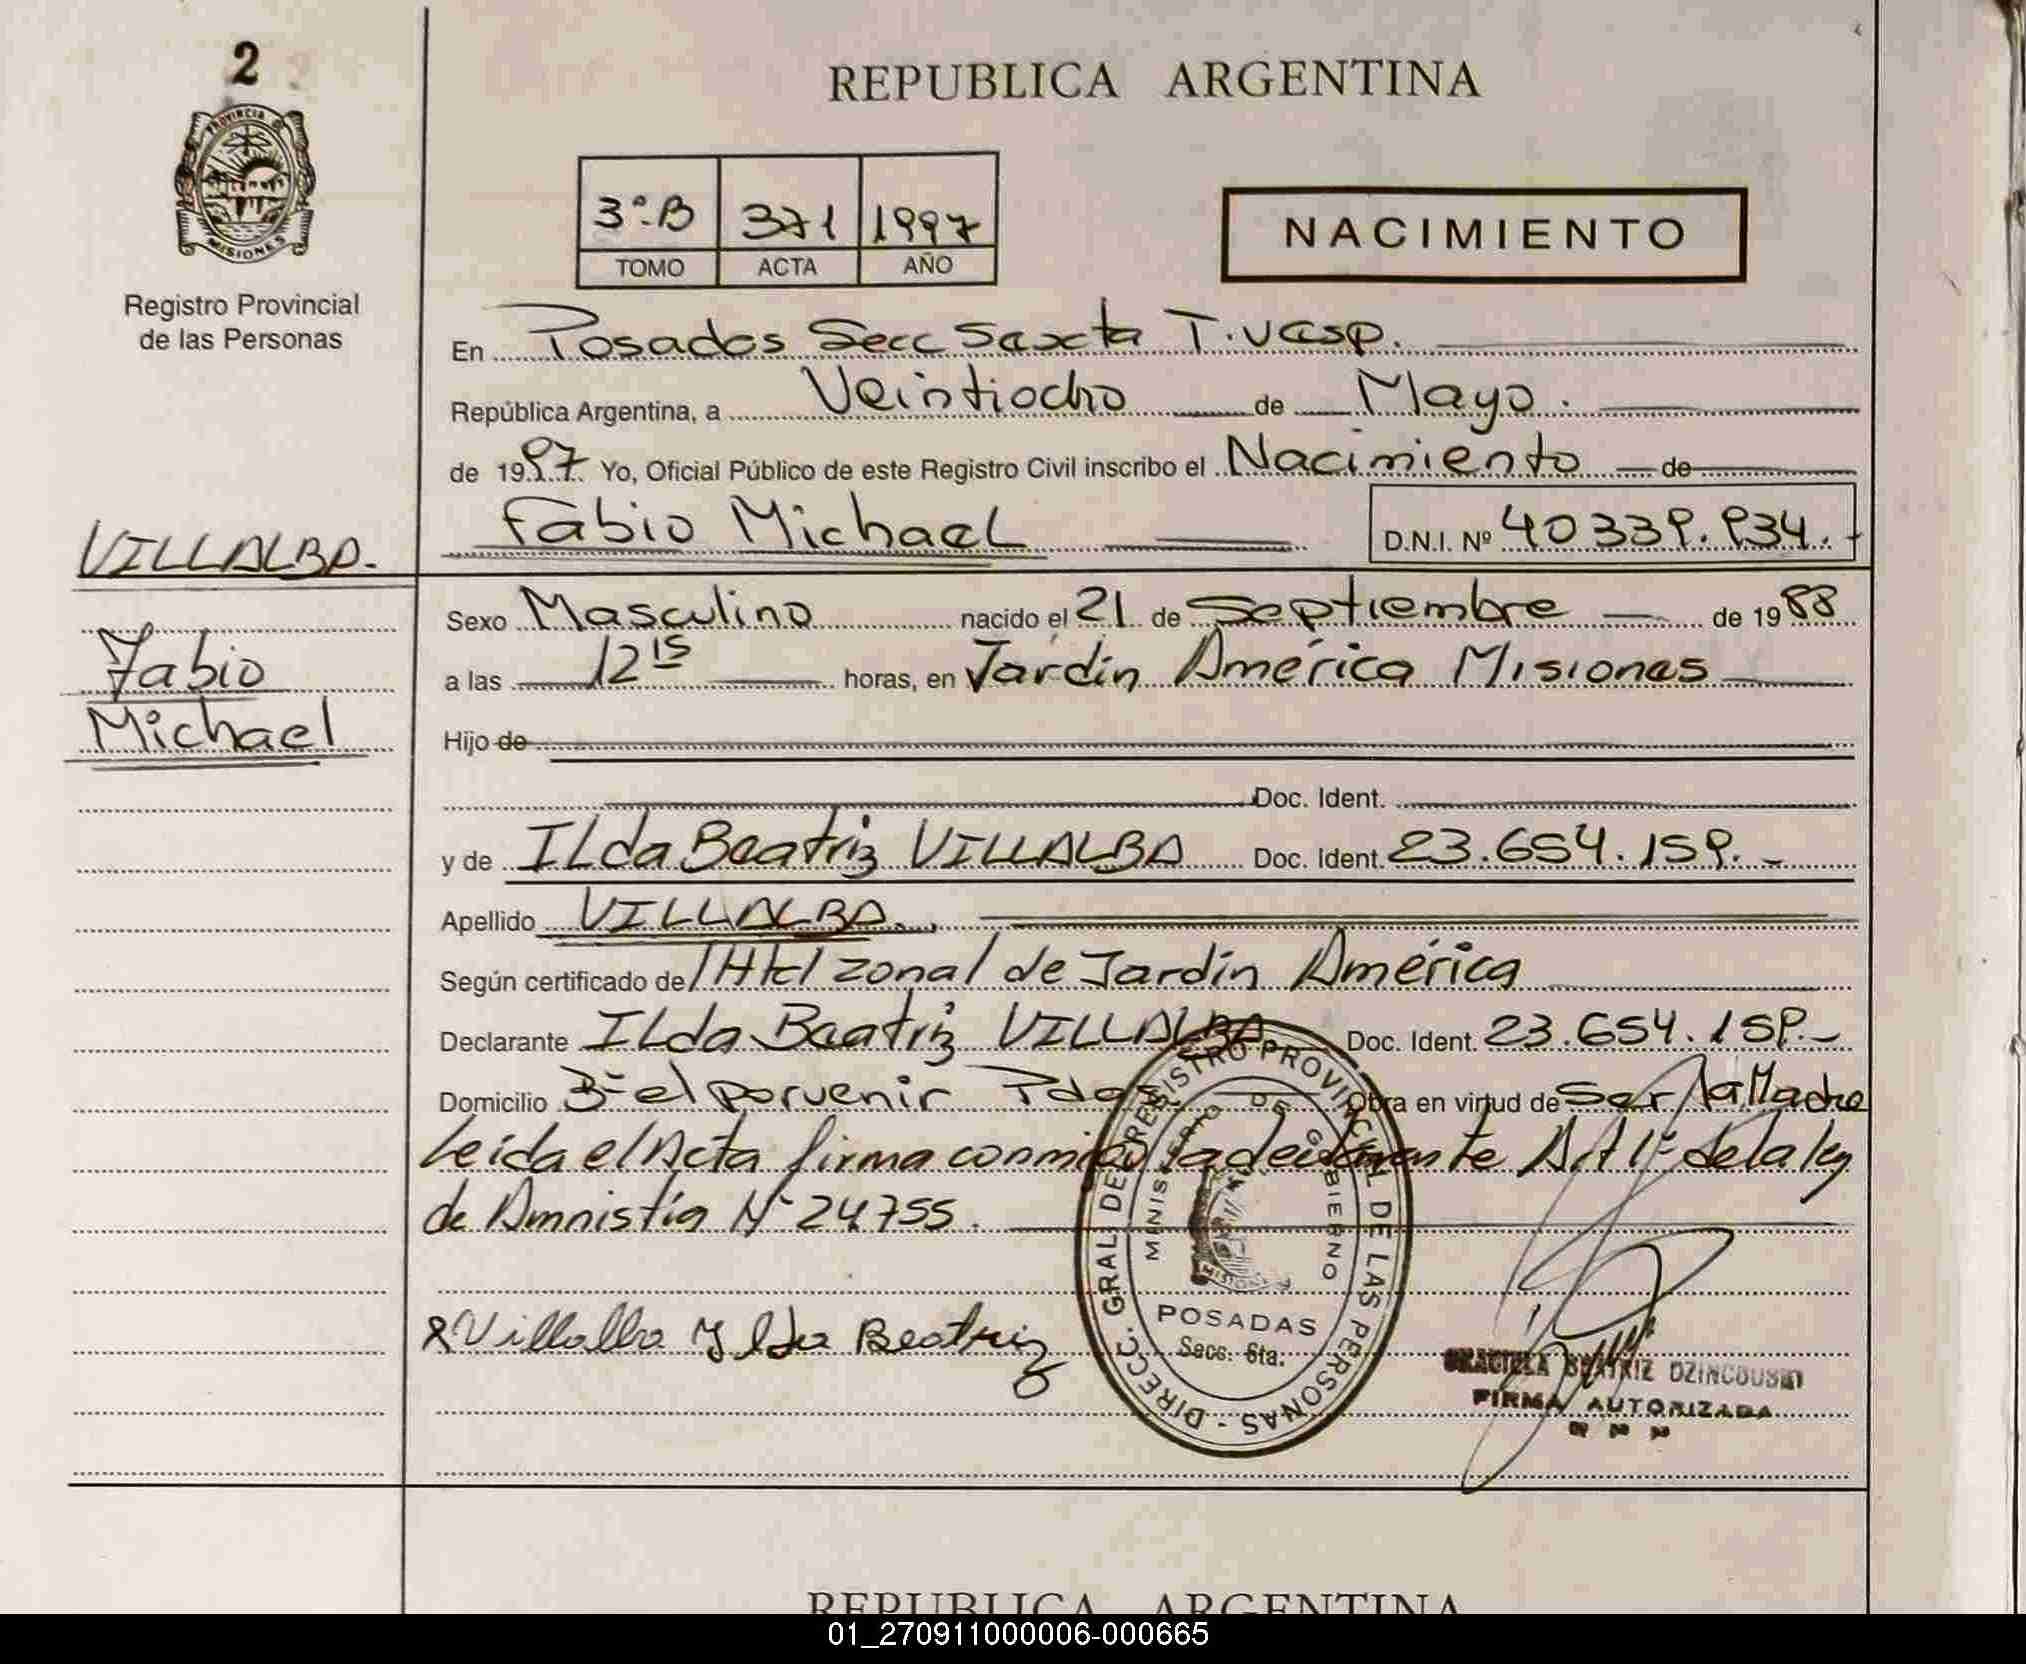 2
PROVINCIA DE
MISIONES
Registro Provincial
de las Personas
REPUBLICA ARGENTINA
3º-B 371 1997
TOMO ACTA AÑO
NACIMIENTO
En Posadas Secc Sexta T.
República Argentina, a Veintiocho de Mayo.
de 1997 Yo, Oficial Público de este Registro Civil inscribo el Nacimiento de
Fabio Michael D.N.I. Nº 40339.934.-
VILLALBA.
Fabio
Michael
Sexo Masculino nacido el 21 de Septiembre de 1988
a las 12 15 horas, en Jardín América Misiones
Hijo de
Doc. Ident.
y de ILda Beatriz VILLALBA Doc. Ident. 23.654.159.-
Apellido VILLALBA.
Según certificado de Htal zonal de Jardín América
Declarante ILda Beatriz VILLALBA Doc. Ident. 23.654.159.-
Domicilio Bº el porvenir Pdas. Obra en virtud de Ser la Madre
Leída el Acta firma conmigo la declarante Art 1º de la ley
de Amnistía Nº 24755.
Villalba Ylda Beatriz
DIRECC. GRAL. DE REGISTRO PROVINCIAL DE LAS PERSONAS -
MINISTERIO DE GOBIERNO
MISIONES
POSADAS
Secc. 6ta.
GRACIELA BEATRIZ DZINCOUSKI
FIRMA AUTORIZADA
REPUBLICA ARGENTINA
01_270911000006-000665